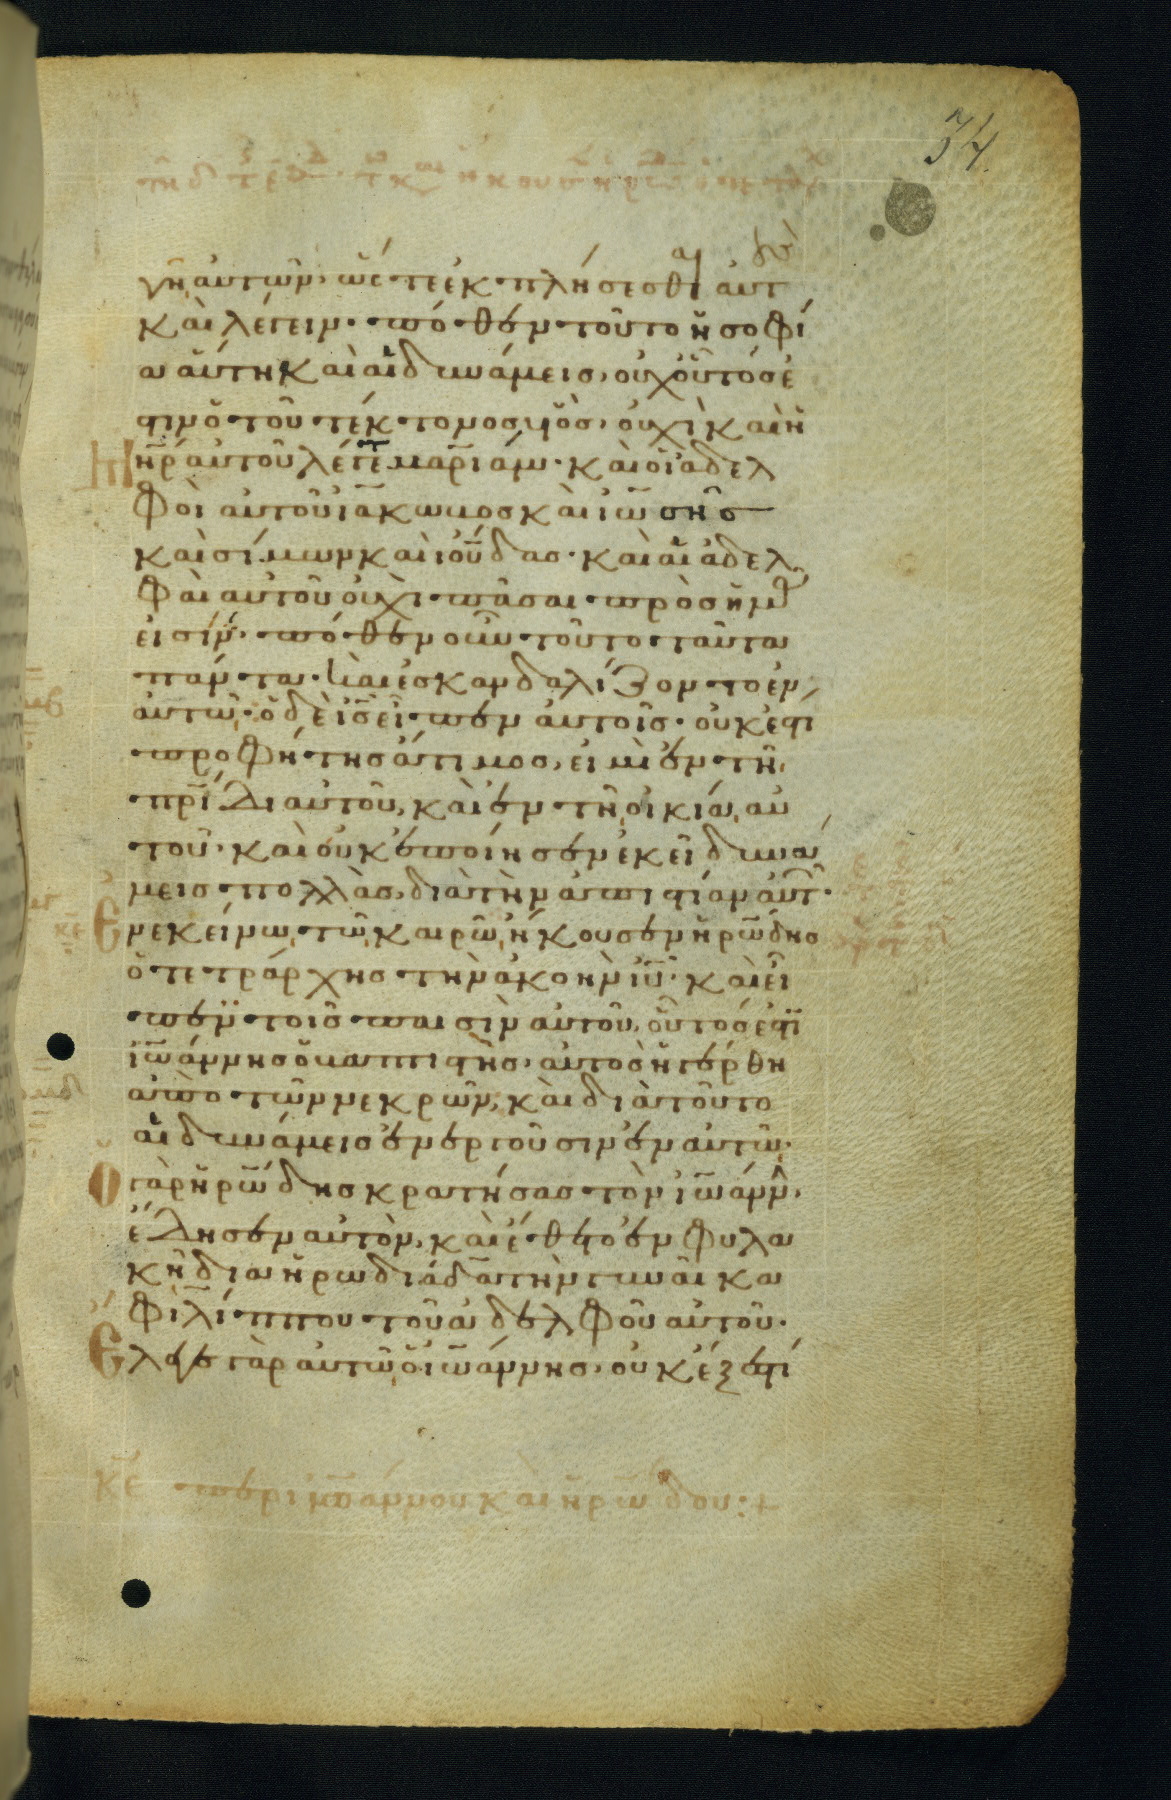 34
γῆ αὐτῶν, ὥστε ἐκπλήσεσθαι αὐτοὺς
καὶ λέγειν· πόθεν τοῦτο ἡ σοφί
α αὕτη καὶ αἱ δυνάμεις, οὐχ οὗτός ἐ
στιν ὁ τοῦ τέκτονος υἱὸς, οὐχὶ καὶ ἡ
μηρ αὐτοῦ λέγεται μαριάμ· καὶ οἱ ἀδελ
φοὶ αὐτοῦ ἰάκωμος καὶ ἰωσῆς
καὶ σίμων καὶ ἰούδας· καὶ αἱ ἀδελ
φαὶ αὐτοῦ οὐχὶ πᾶσαι πρὸς ἡμᾶς
εἰσίν· πόθεν οὖν τοῦτο ταῦτα
πάντα· καὶ ἐσκανδαλίζοντο ἐν
αὐτῷ· ὁ δὲ ις εἶπεν αὐτοῖς· οὐκ ἔστι
προφήτης ἄτιμος, εἰ μὴ ἐν τῇ
πρίδι αὐτοῦ, καὶ ἐν τῇ οἰκίᾳ αὐ
τοῦ· καὶ οὐκ ἐποίησεν ἐκεῖ δυνά
μεις πολλὰς, διὰ τὴν ἀπιστίαν αὐτῶν·
Ἐν ἐκείνῳ τῷ καιρῷ ἤκουσεν ἡρώδης
ὁ τετράρχης τὴν ἀκοὴν ιυ· καὶ εἶ
πεν τοῖς παισὶν αὐτοῦ, οὗτός ἐστι
ἰωάννης ὁ βαπτιστής, αὐτὸς ἠγέρθη
ἀπὸ τῶν νεκρῶν, καὶ διὰ τοῦτο
αἱ δυνάμεις ἐνεργοῦσιν ἐν αὐτῷ·
Ὁ γὰρ ἡρώδης κρατήσας τὸν ἰωάννην,
ἔδησεν αὐτὸν, καὶ ἔθετο ἐν φυλα
κῇ διὰ ἡρωδιάδα τὴν γυναῖκα
φιλίππου τοῦ ἀδελφοῦ αὐτοῦ·
Ἔλεγε γὰρ αὐτῷ ὁ ἰωάννης, οὐκ ἔξεστί
κε περι ιωάννου καὶ ἡρώδου:+